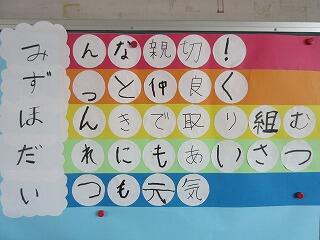 みんな親切!
ずっと仲良く
ほんきで取り組む
だれにもあいさつ
いつも元気